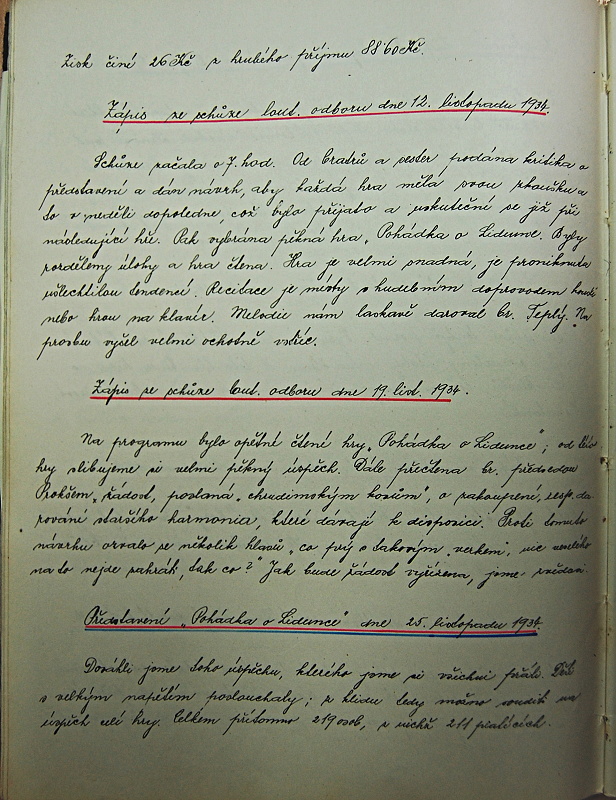 Zisk činí 26 Kč z hrubého příjmu 88˙60 Kč.
Zápis ze schůze lout. odboru dne 12. listopadu 1934.
Schůze začala o 7. hod. Od bratrů a sester podána kritika o
představení a dán návrh, aby každá hra měla svou zkoušku a
to v neděli dopoledne, což bylo přijato a uskuteční se již při
následující hře. Pak vybrána pěkná hra „Pohádka o Lidunce. Byly
rozděleny úlohy a hra čtena. Hra je velmi snadná, je proniknuta
ušlechtilou tendencí. Recitace je místy s hudebním doprovodem
nebo hrou na klavír. Melodie nám laskavě daroval br. Teplý. Na
prosbu vyšel velmi ochotně vstříc.
Zápis ze schůze lout. odboru dne 19. list. 1934.
Na programu bylo opětné čtení hry „Pohádka o Lidunce"; od této
hry slibujeme si velmi pěkný úspěch. Dále přečtena br. předsedou
Prokšem „žádost, poslaná „chrudimským kosům", o zakoupení, resp. da
rování staršího harmonia, které dávají k disposici. Proti tomuto
návrhu ozvalo se několik hlasů „co prý s takovým „verkem", nic veselého
na to nejde zahrát, tak co?" Jak bude žádost vyřízena, jsme zvědavi.
Představení „Pohádka o Lidunce" dne 25. listopadu 1934.
Dosáhli jsme toho úspěchu, kterého jsme si všichni přáli. Děti
s velkým napětím poslouchaly; z klidu tedy možno soudit na
úspěch celé hry. Celkem přítomno 219 osob, z nichž 211 platících.